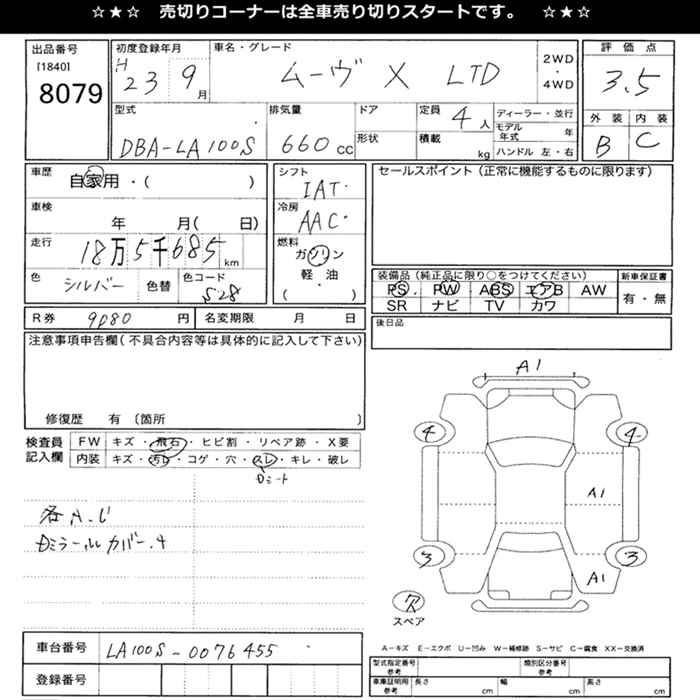 ☆★☆ 売切りコーナーは全車売り切りスタートです。 ☆★☆
出品番号
[1840]
8079
初度登録年月
H 23 9月
車名・グレード
ムーヴ X LTD
2WD
・
4WD
評価点
3.5
外装 内装
B C
型式
DBA-LA100S
排気量
660 CC
ドア
形状
定員 4人
積載 kg
ディーラー・並行
モデル年式 年
ハンドル 左・右
車歴
自家用・( )
車検
年 月( 日)
走行
18万5千685 km
色
シルバー
色替
色コード
S28
シフト
IAT
冷房
AAC
燃料
ガソリン
軽・油
( )
セールスポイント(正常に機能するものに限ります)
装備品(純正品に限り○をつけてください)
PS PW ABS エアB AW
SR ナビ TV カワ
新車保証書
有・無
R券 9080 円
名変期限 月 日
後日品
注意事項申告欄(不具合内容等は具体的に記入して下さい)
修復歴 有 (箇所 )
検査員
記入欄
FW キズ・飛石・ヒビ割・リペア跡・X要
内装 キズ・汚レ・コゲ・穴・スレ・キレ・破レ
Dシート
各A.U
Dミラー カバー.キ
A1
4 4
A1
3 3
A1
スペア
車台番号 LA100S-0076455
登録番号
A－キズ E－エクボ U－凹み W－補修跡 S－サビ C－腐食 XX－交換済
型式指定番号 参考
類別区分番号 参考
車庫証明用 参考 長さ cm 幅 cm 高さ cm